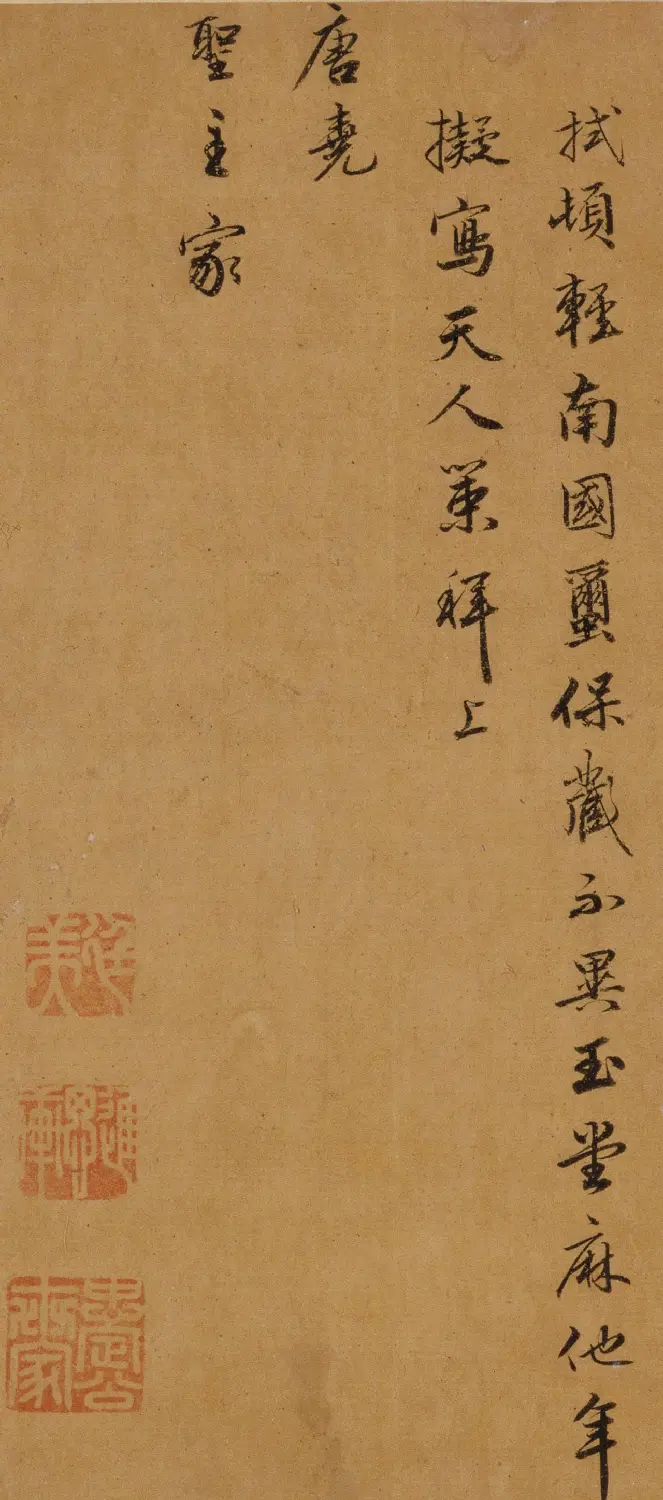 拭頓輕南國蠒保藏不異玉堂麻他年
擬寫天人策拜上
唐堯
聖主家